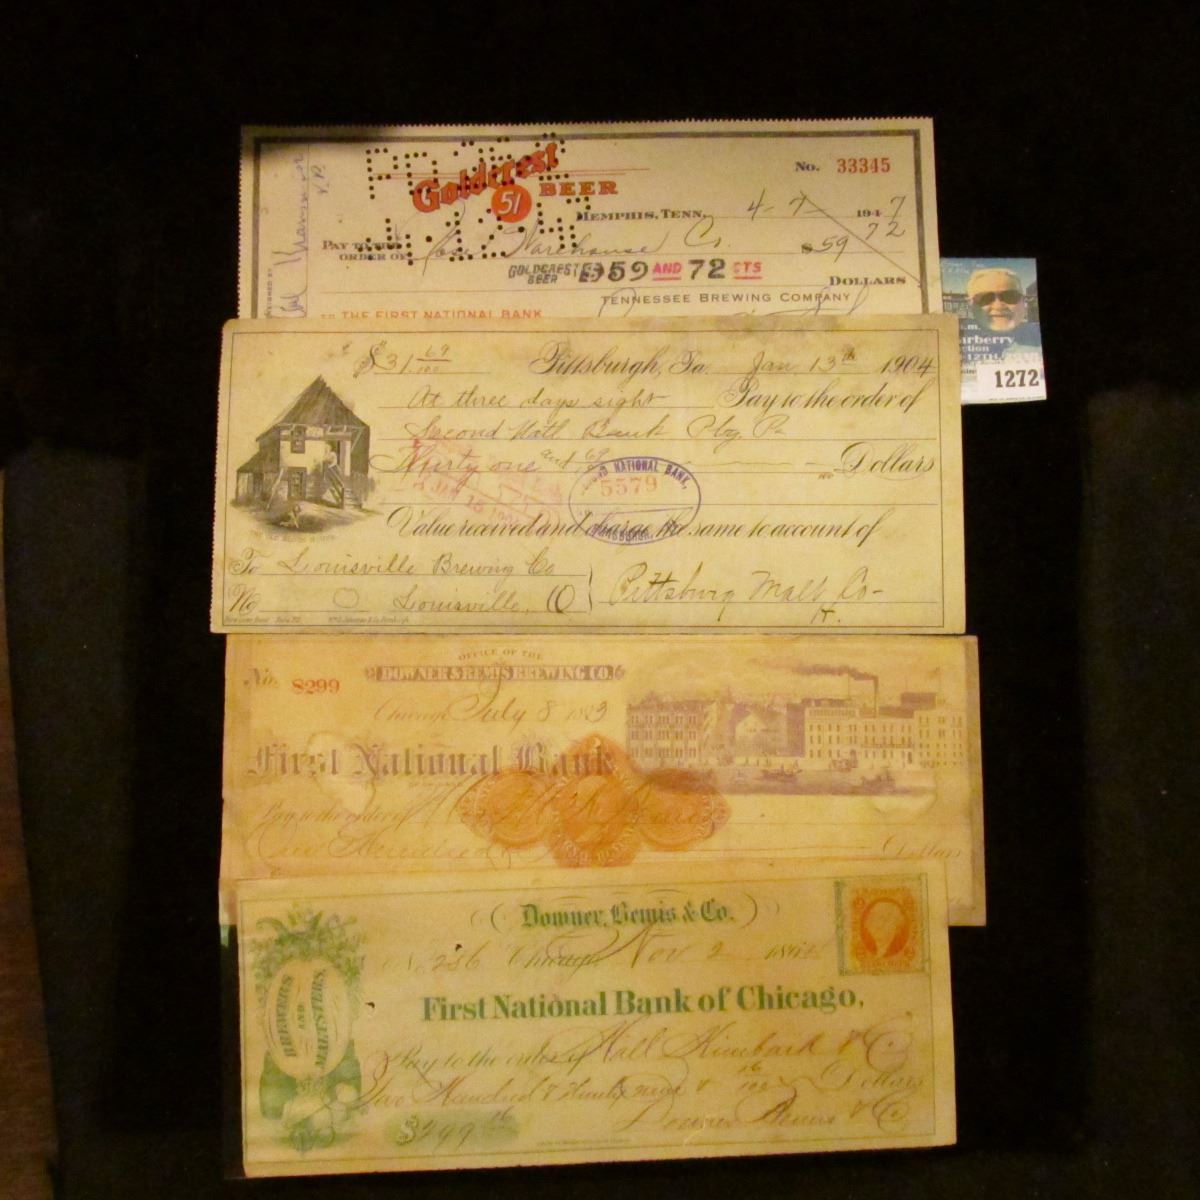 Goldcrest
51 BEER
No. 33345
MEMPHIS, TENN. 4-7 1947
PAY TO THE
ORDER OF Warehouse Co $59 72
GOLDCREST
BEER
59 AND 72 CTS
DOLLARS
TENNESSEE BREWING COMPANY
TO THE FIRST NATIONAL BANK
a.m.
1272
$31 69/100 Pittsburgh, Pa. Jan 13th 1904
At three days sight Pay to the order of
Second Natl Bank Pbg Pa
Thirty one and 69 Dollars
NATIONAL BANK,
5579
Value received and charge the same to account of
To Louisville Brewing Co
No Louisville, O
Pittsburg Malt Co
OFFICE OF THE
DOWNER & BEMIS BREWING CO.
No. 8299
Chicago July 8
First National Bank
Pay to the order of
One Hundred Dollars
Downer, Bemis & Co.
No. 236 Chicago, Nov 2
BREWERS
AND
MALTSTERS.
First National Bank of Chicago,
Pay to the order of Hall Kimbark & Co
Two Hundred & Ninety nine & 16/100 Dollars
Downer Bemis & Co
$299 16